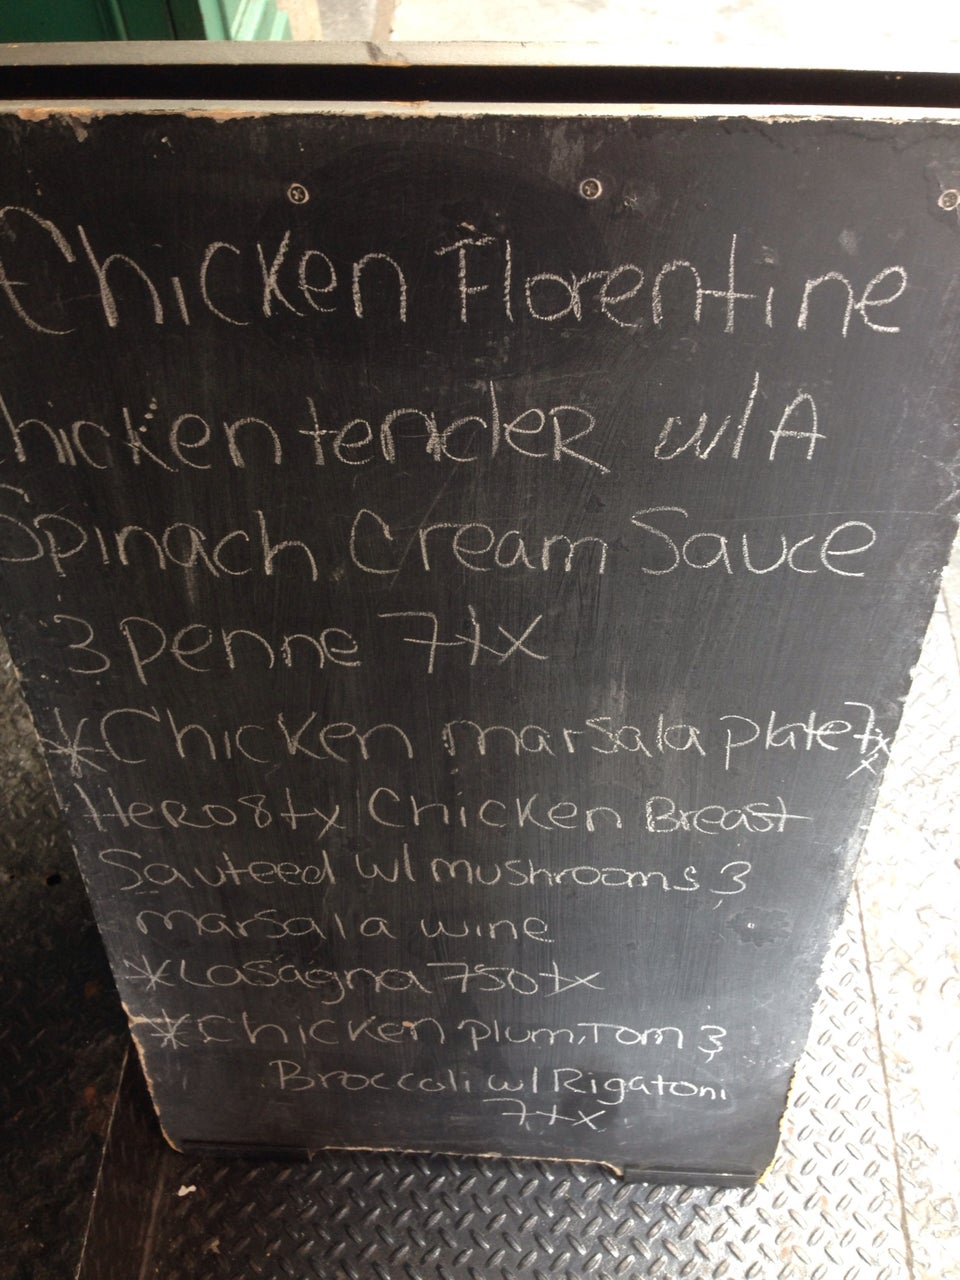 Chicken Florentine
hicken tender w/ A
Spinach Cream Sauce
& penne 7+x
*Chicken marsala plate 7+x
Hero 8+x Chicken Breast
Sauteed w/ mushrooms &
marsala wine
*Lasagna 750+x
*Chicken plum, Tom &
Broccoli w/ Rigatoni
7+x